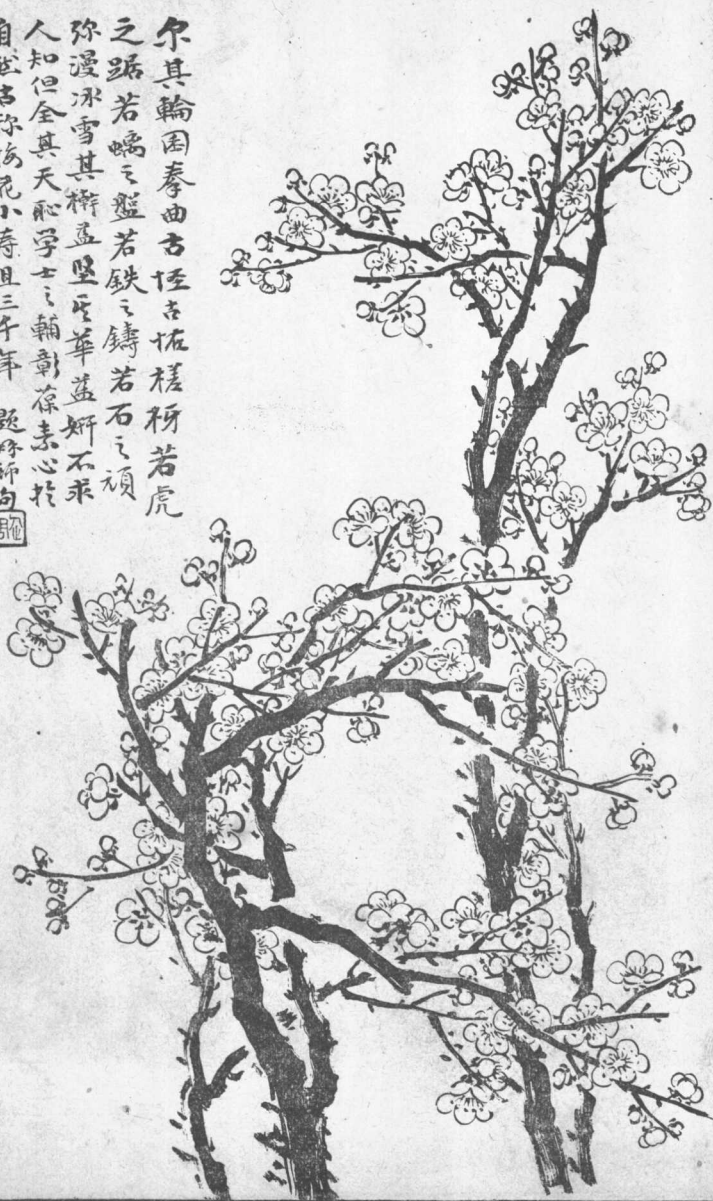 尔其輪囷拳曲古怪古怪槎枒若虎
之踞若螭之盤若鉄之鑄若石之頑
弥漫冰雪其榦益堅其華益妍不求
人知但全其天恥学士之輔彰葆素心於
自然古称梅花小寿且三千年 題